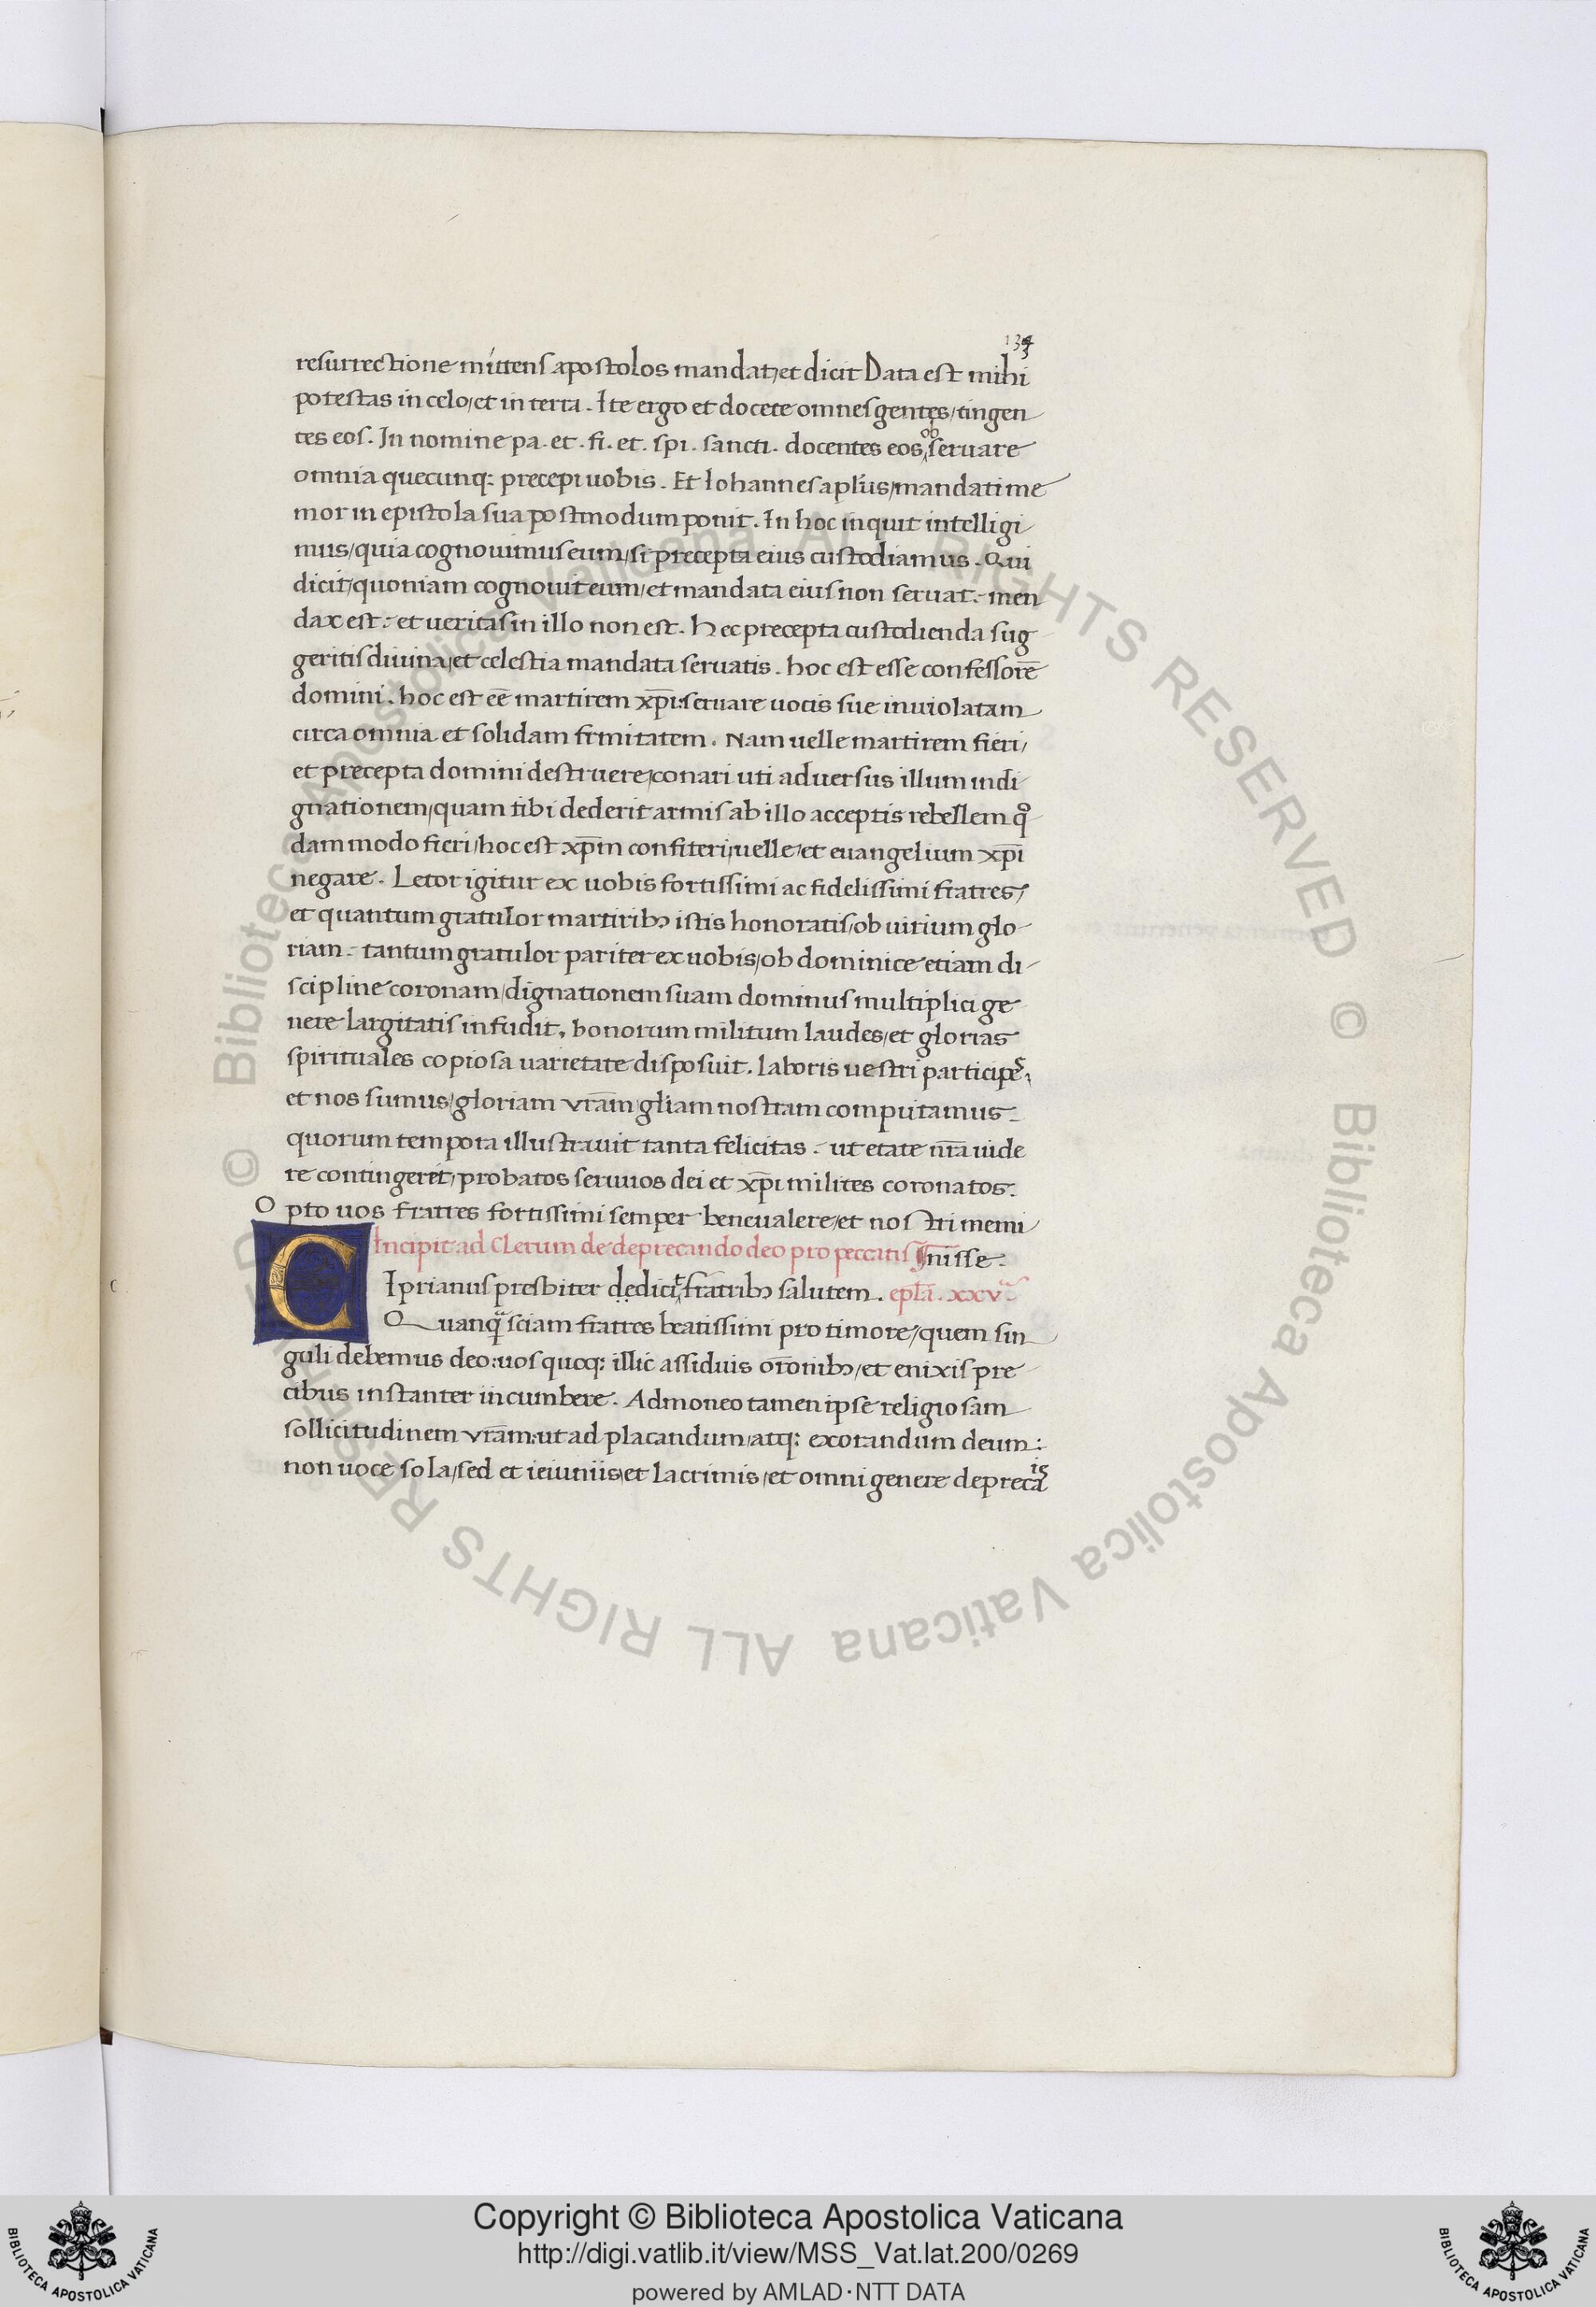 134
resurrectione mittens apostolos mandat, et dicit Data est mihi
potestas in celo, et in terra. Ite ergo et docete omnes gentes, tingen
tes eos. In nomine pa. et. fi. et. spi. sancti. docentes eos obseruare
omnia quecunq; precepi uobis. Et Iohannes apl̄us, mandati me
mor in epistola sua postmodum ponit. In hoc inquit intelligi
mus, quia cognouimus eum, si precepta eius custodiamus. Qui
dicit, quoniam cognouit eum, et mandata eius non seruat: men
dax est: et ueritas in illo non est. Hec precepta custodienda sug
geritis diuina, et celestia mandata seruatis. hoc est esse confessorē
domini. hoc est eē martirem xp̄i: seruare uocis sue inuiolatam
circa omnia et solidam firmitatem. Nam uelle martirem fieri,
et precepta domini destruere, conari uti aduersus illum indi
gnationem, quam tibi dederit armis ab illo acceptis rebellem qͦ
dam modo fieri, hoc est xp̄m confiteri, uelle, et euangelium xp̄i
negare. Letor igitur ex uobis fortissimi ac fidelissimi fratres,
et quantum gratulor martirib; istis honoratis, ob uirium glo
riam: tantum gratulor pariter ex uobis, ob dominice etiam di
scipline coronam, dignationem suam dominus multiplici ge
nere largitatis infudit, bonorum militum laudes, et glorias
spirituales copiosa uarietate disposuit. laboris uestri participes
et nos sumus, gloriam vr̄am gl̄iam nostram computamus.
quorum tempora illustrauit tanta felicitas: ut etate nr̄a uide
re contingeret, probatos seruuos dei et xp̄i milites coronatos.
Opto uos fratres fortissimi semper beneualere, et nostri memi
Incipit ad Clerum de deprecando deo pro peccatis nisse.
CIprianus presbiter dedici; fratrib; salutem. epl̄a. xxv
Quanq̄ sciam fratres beatissimi pro timore, quem sin
guli debemus deo: uos quoq; illic assiduis or̄onib; et enixis pre
cibus instanter incumbere. Admoneo tamen ipse religiosam
sollicitudinem vr̄am: ut ad placandum, atq; exorandum deum:
non uoce sola, sed et ieiuniis, et lacrimis, et omni genere depreca
Copyright © Biblioteca Apostolica Vaticana
http://digi.vatlib.it/view/MSS_Vat.lat.200/0269
powered by AMLAD·NTT DATA
BIBLIOTECA APOSTOLICA VATICANA
BIBLIOTECA APOSTOLICA VATICANA
© Biblioteca Apostolica Vaticana ALL RIGHTS RESERVED © Biblioteca Apostolica Vaticana ALL RIGHTS RESERVED